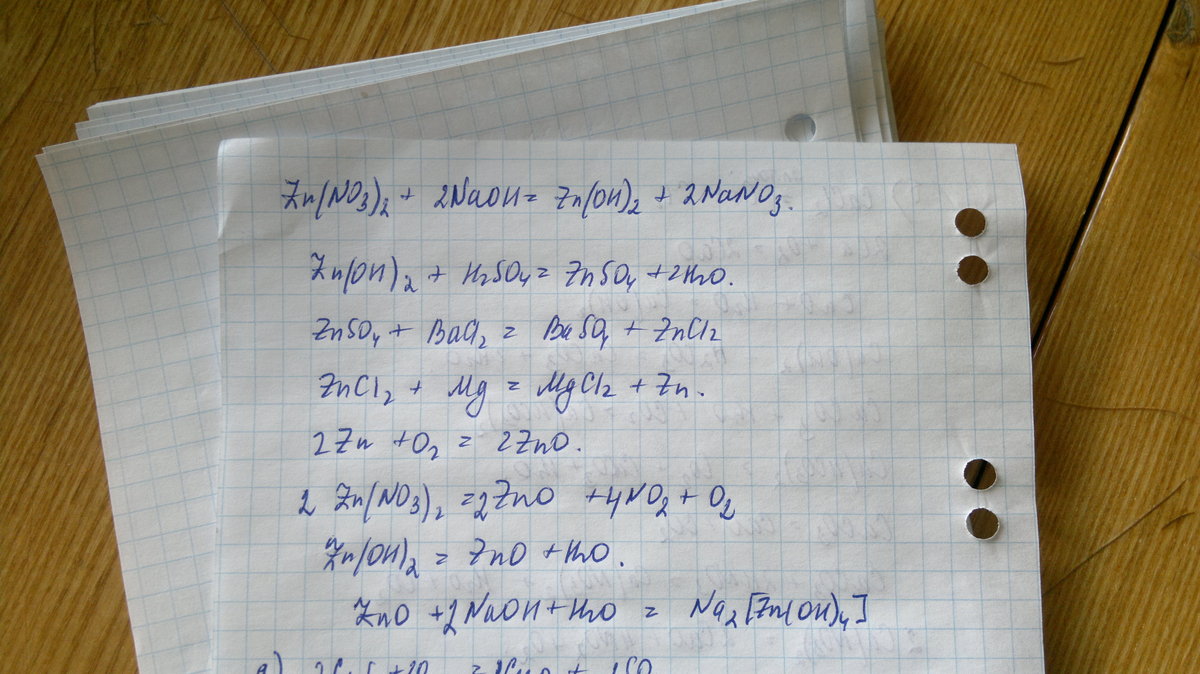 Zn(NO3)2 + 2NaOH = Zn(OH)2 + 2NaNO3.
Zn(OH)2 + H2SO4 = ZnSO4 + 2H2O.
ZnSO4 + BaCl2 = BaSO4 + ZnCl2
ZnCl2 + Mg = MgCl2 + Zn.
2Zn + O2 = 2ZnO.
2 Zn(NO3)2 = 2ZnO + 4NO2 + O2
Zn(OH)2 = ZnO + H2O.
ZnO + 2NaOH + H2O = Na2[Zn(OH)4]